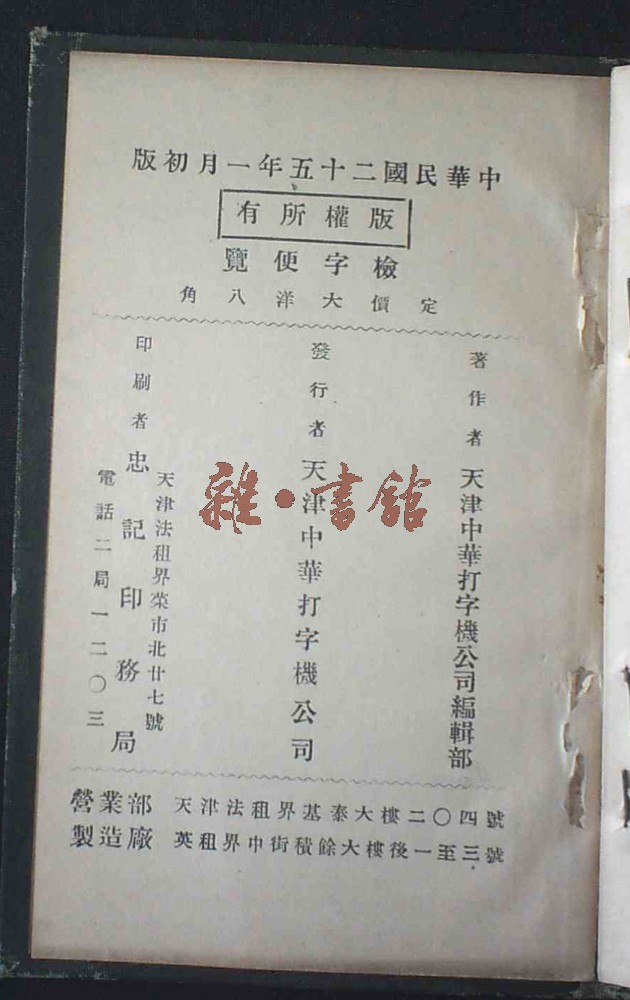 中華民國二十五年一月初版
版權所有
檢字便覽
定價大洋八角
著作者 天津中華打字機公司編輯部
發行者 天津中華打字機公司
印刷者 忠記印務局
天津法租界菜市北廿七號
電話二局一二〇三
營業部 天津法租界基泰大樓二〇四號
製造廠 英租界中街積餘大樓後一至三號
雜·書館